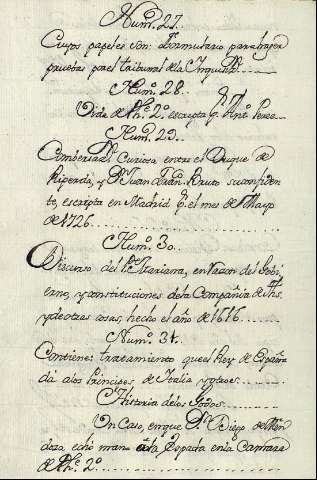 Num.º 27.
Cuyos papeles son: Formulario para hazer
pruebas por el tribunal de la Inquisⁿ.
Num.º 28.
Vida de Phe. 2.º escripta pr. Antº. Perez
Num.º 29.
Combersasⁿ Curiosa, entre el Duque de
Riperda, y Dn. Juan Franº. Bruto su confiden
te, escripta en Madrid pr. el mes de Mayo
de 1726.
Num.º 30.
Discurso del Pe. Mariana, en razon del Gobi
erno, y constituciones de la Compañia de Jhs.
y de otras cosas, hecho el año de 1616.
Num.º 31.
Contiene: tratamiento que el Rey de España
dá a los Principes de Italia y otros.
Historia de los Godos.
Un Caso, en que Dn. Diego de Men
doza, echó mano a la Espada en la Camara
de Phe. 2.º